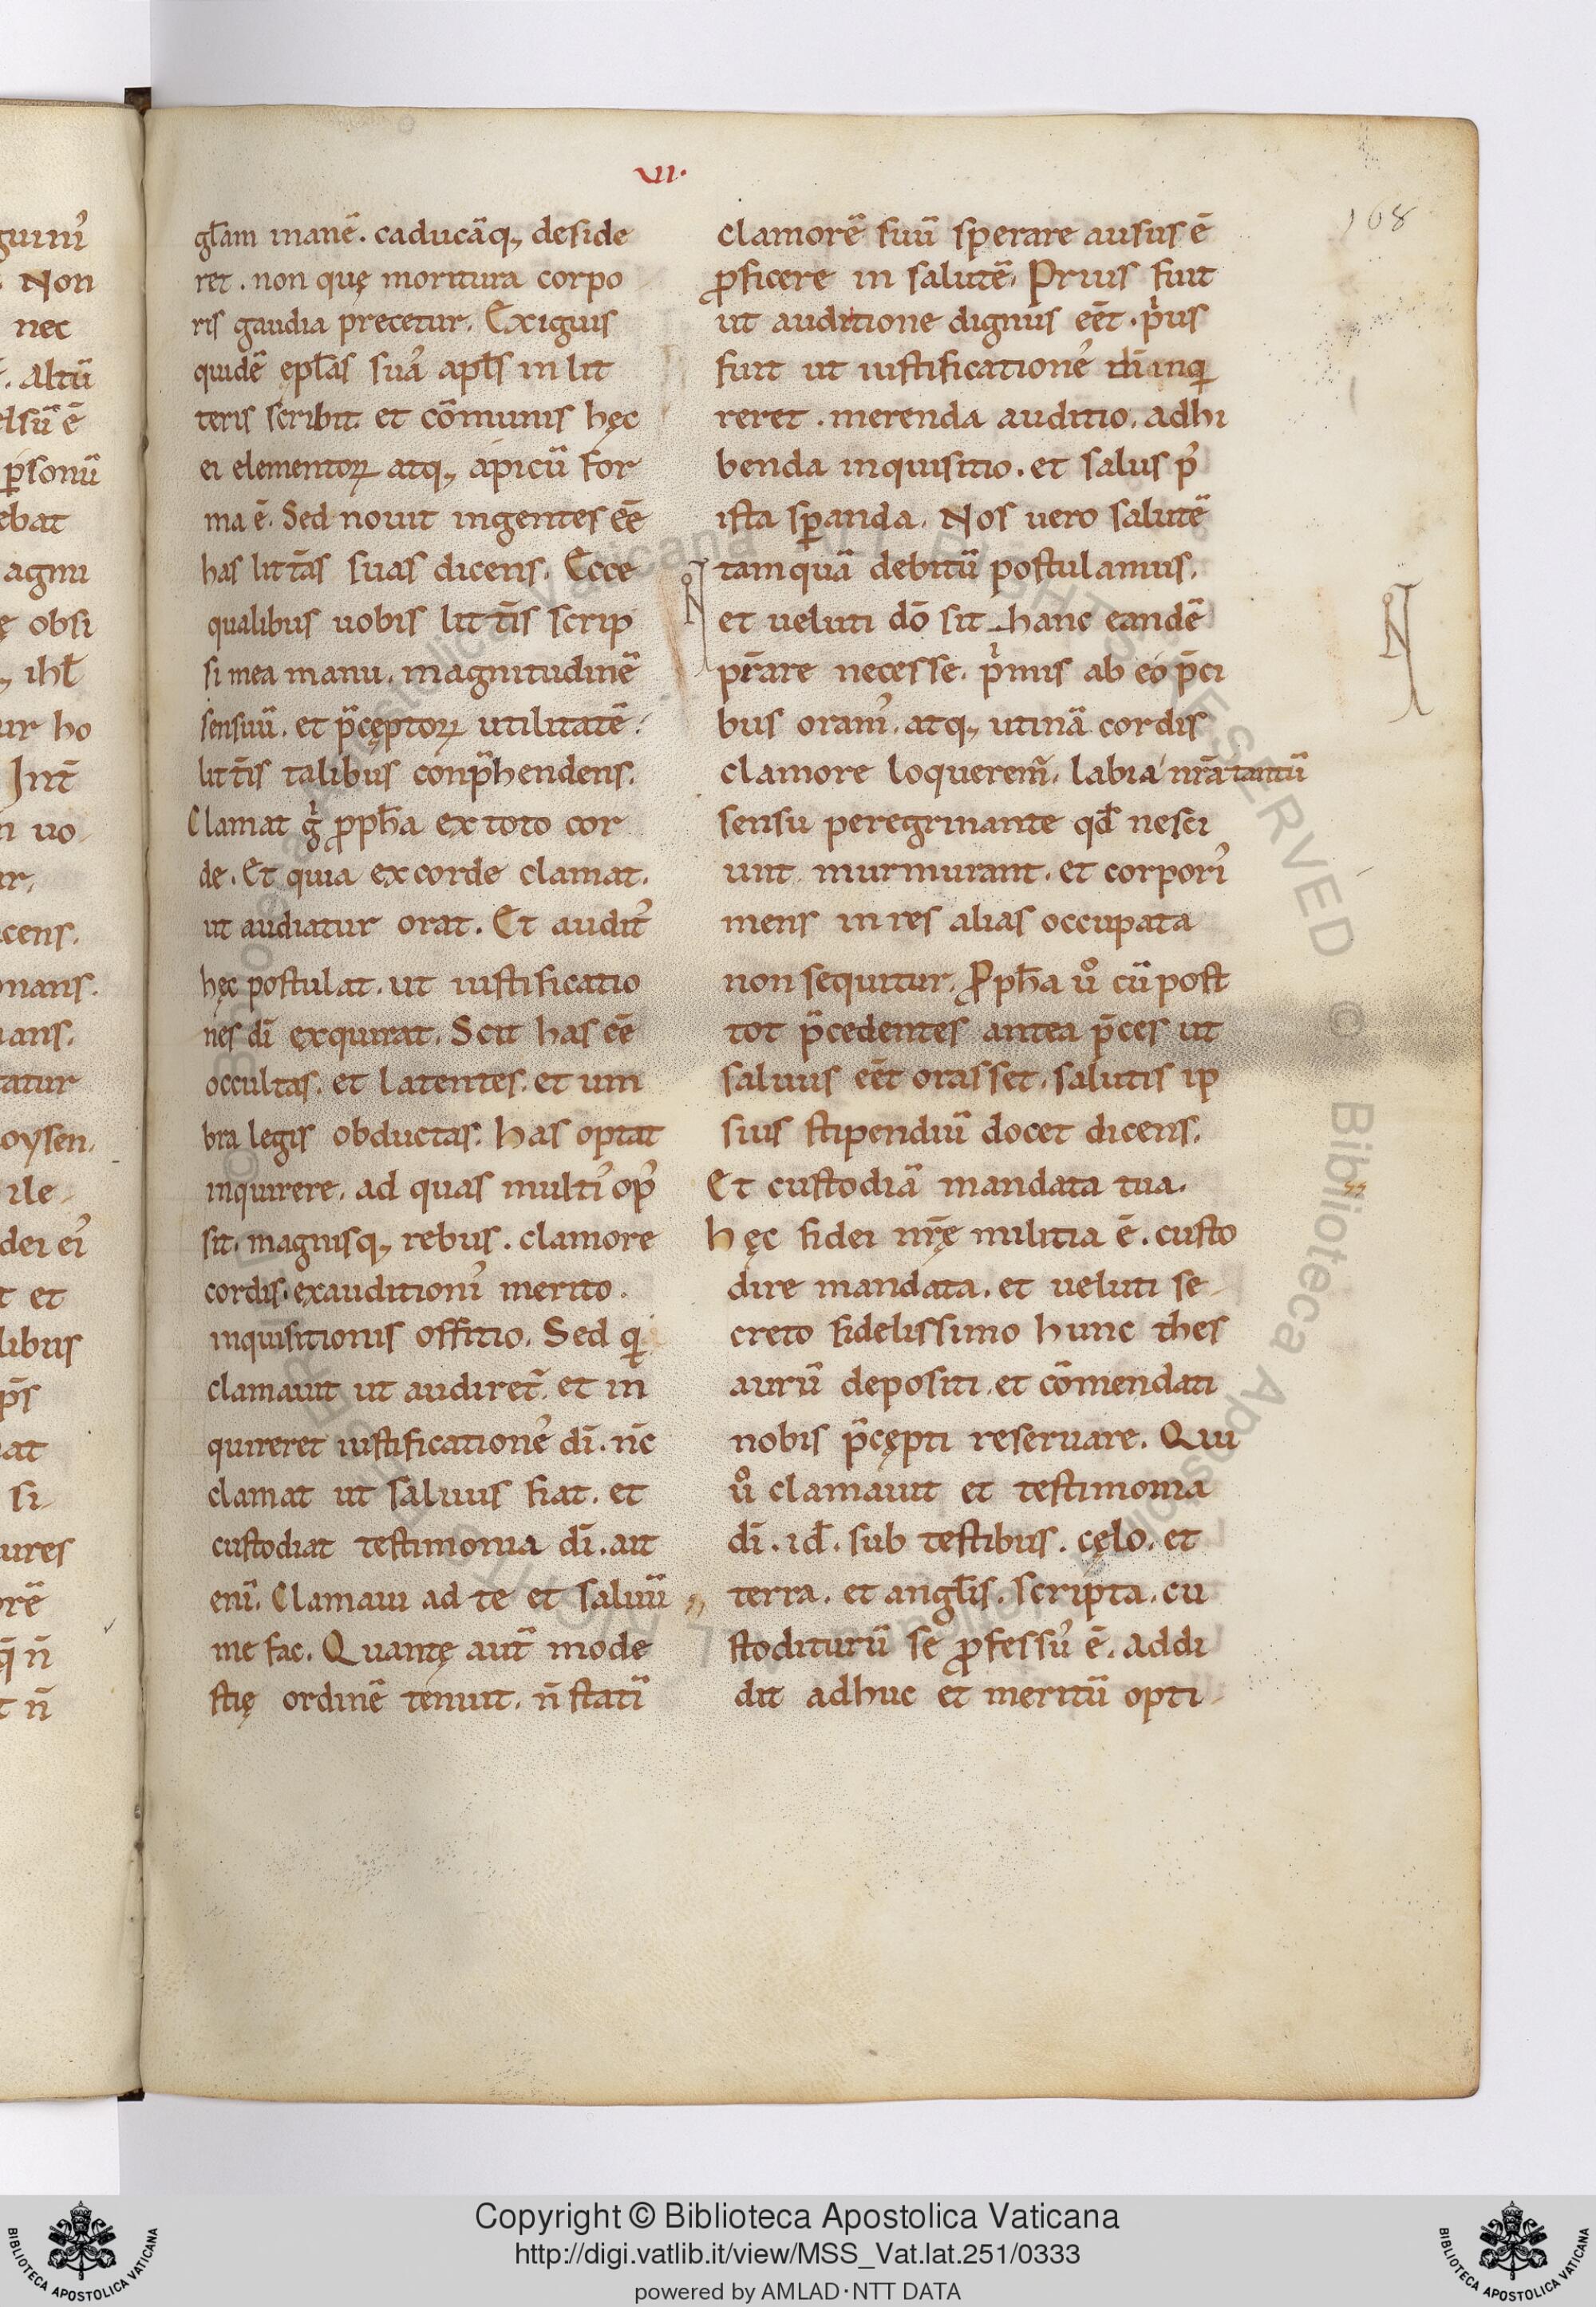 VII.
168
gl̄am manē. caducāq, deside
ret. non quę moritura corpo
ris gaudia precetur. Exiguis
quidē epl̄as suaˀ apl̄s in lit
teris scribit. et cōmunis hęc
ei elementoꝝ atq, apicū for
ma ē. Sed nouit ingentes eē
has litt̄as suas dicens. Ecce
qualibus uobis litt̄is scrip
si mea manu. magnitudinē
sensuū. et p̄cęptoꝝ utilitatē.
litt̄is talibus conp̄hendens.
Clamat gͥ ꝓph̄a ex toto cor
de. Et quia ex corde clamat.
ut audiatur orat. Et auditˀ
hęc postulat. ut iustificatio
nes dī exquirat. Scit has eē
occultas. et latentes. et um
bra legis obductas. has optat
inquirere. ad quas multiˀ opˀ
sit. magnisq, rebus. clamore
cordis. exauditioniˀ merito.
inquisitionis offitio. Sed qͥ
clamauit ut audiret̄. et in
quireret iustificationeˀ dī. n̄c
clamat ut saluus fiat. et
custodiat testimonia dī. ait
enī. Clamaui ad te et saluū
me fac. Quantę aut̄ mode
stię ordinē tenuit. n̄ statī
clamorē suū sperare ausus ē
ꝓficere in salutē. Prius fuit
ut auditione dignus eēt. pͥus
fuit ut iustificationeˀ dī inqͥ
reret. merenda auditio. adhi
benda inquisitio. et salus pˀ
ista sꝑanda. Nos uero salutē
tamquā debitū postulamus.
et ueluti dō sit hanc eandē
pr̄are necesse. pͥmis ab eo p̄ci
bus oramˀ. atq, utinā cordis
clamore loquerem̄. labia nr̄a tantū
sensu peregrinante qd̄ nesci
unt murmurant. et corporiˀ
mens in res alias occupata
non sequitur. Ꝓph̄a uͦ cū post
tot p̄cedentes antea p̄ces ut
saluus eēt orasset. salutis ip
sius stipendiū docet dicens.
Et custodiā mandata tua.
hęc fidei nr̄ę militia ē. custo
dire mandata. et ueluti se
creto fidelissimo hunc thes
aurū depositi. et cōmendati
nobis p̄cępti reseruare. Qui
uͦ clamauit et testimonia
dī. id̄. sub testibus. cęlo. et
terra. et angl̄is. scripta. cu
stoditurū se ꝓfessuˀ ē. addi
dit adhuc et meritū opti
Copyright © Biblioteca Apostolica Vaticana
http://digi.vatlib.it/view/MSS_Vat.lat.251/0333
powered by AMLAD·NTT DATA